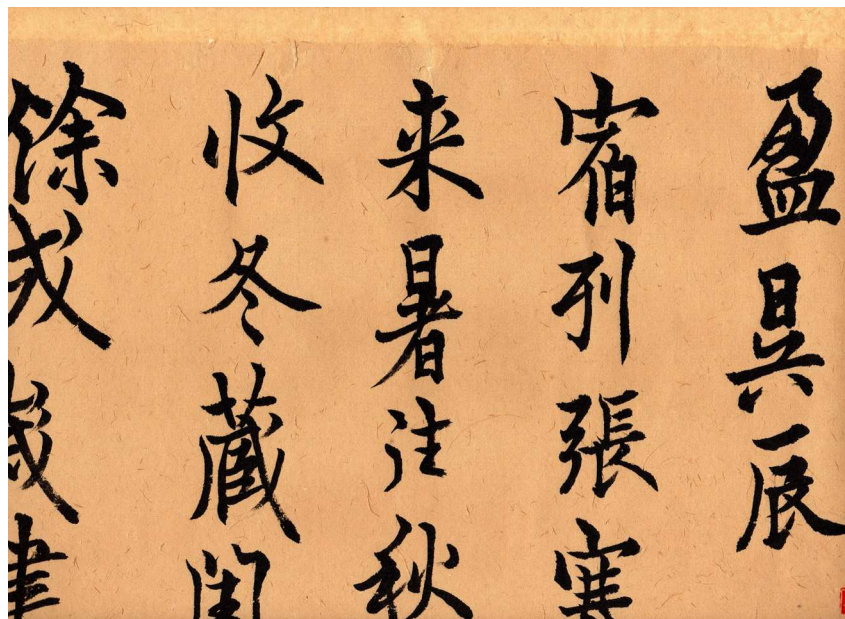 盈昃辰
宿列張寒
来暑往秋
收冬藏閏
餘成歲律